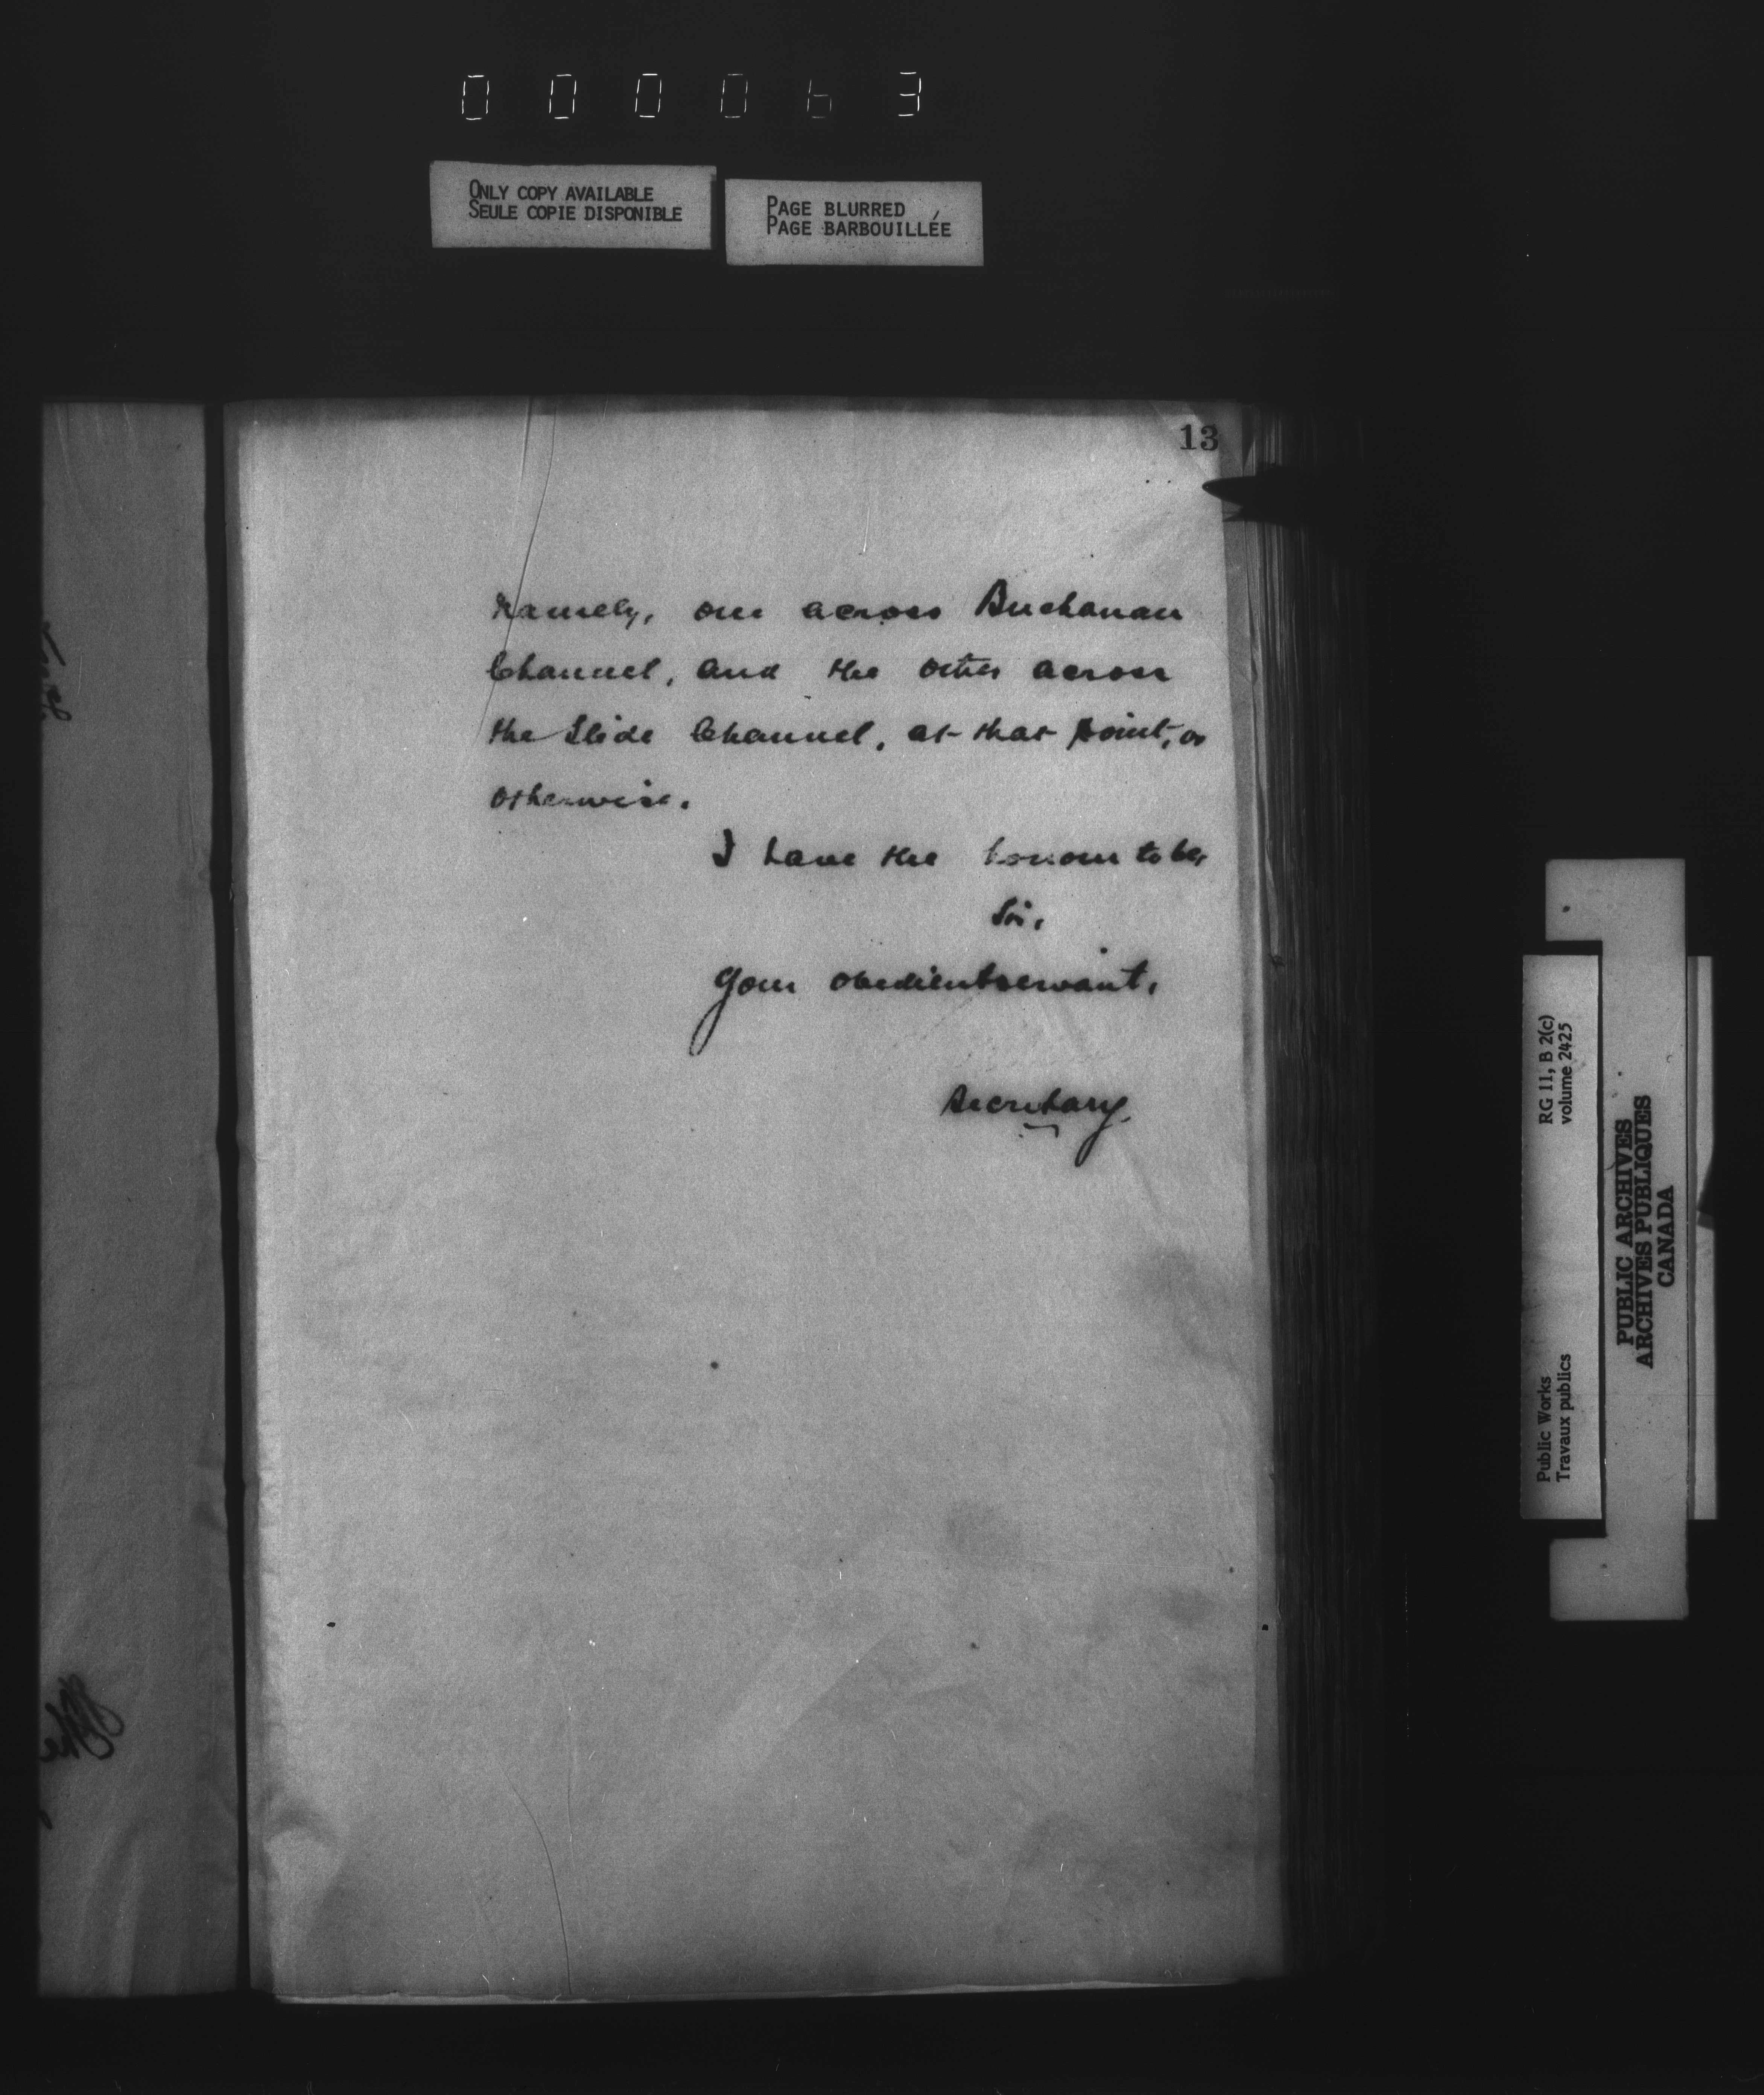 000063
ONLY COPY AVAILABLE
SEULE COPIE DISPONIBLE
PAGE BLURRED
PAGE BARBOUILLÉE
13
namely, one across Buchanan
Channel, and the other across
the Slide Channel, at that point, or
otherwise.
I have the honour to be,
Sir,
Your obedient servant,
Secretary.
RG 11, B 2(c)
volume 2425
Public Works
Travaux publics
PUBLIC ARCHIVES
ARCHIVES PUBLIQUES
CANADA